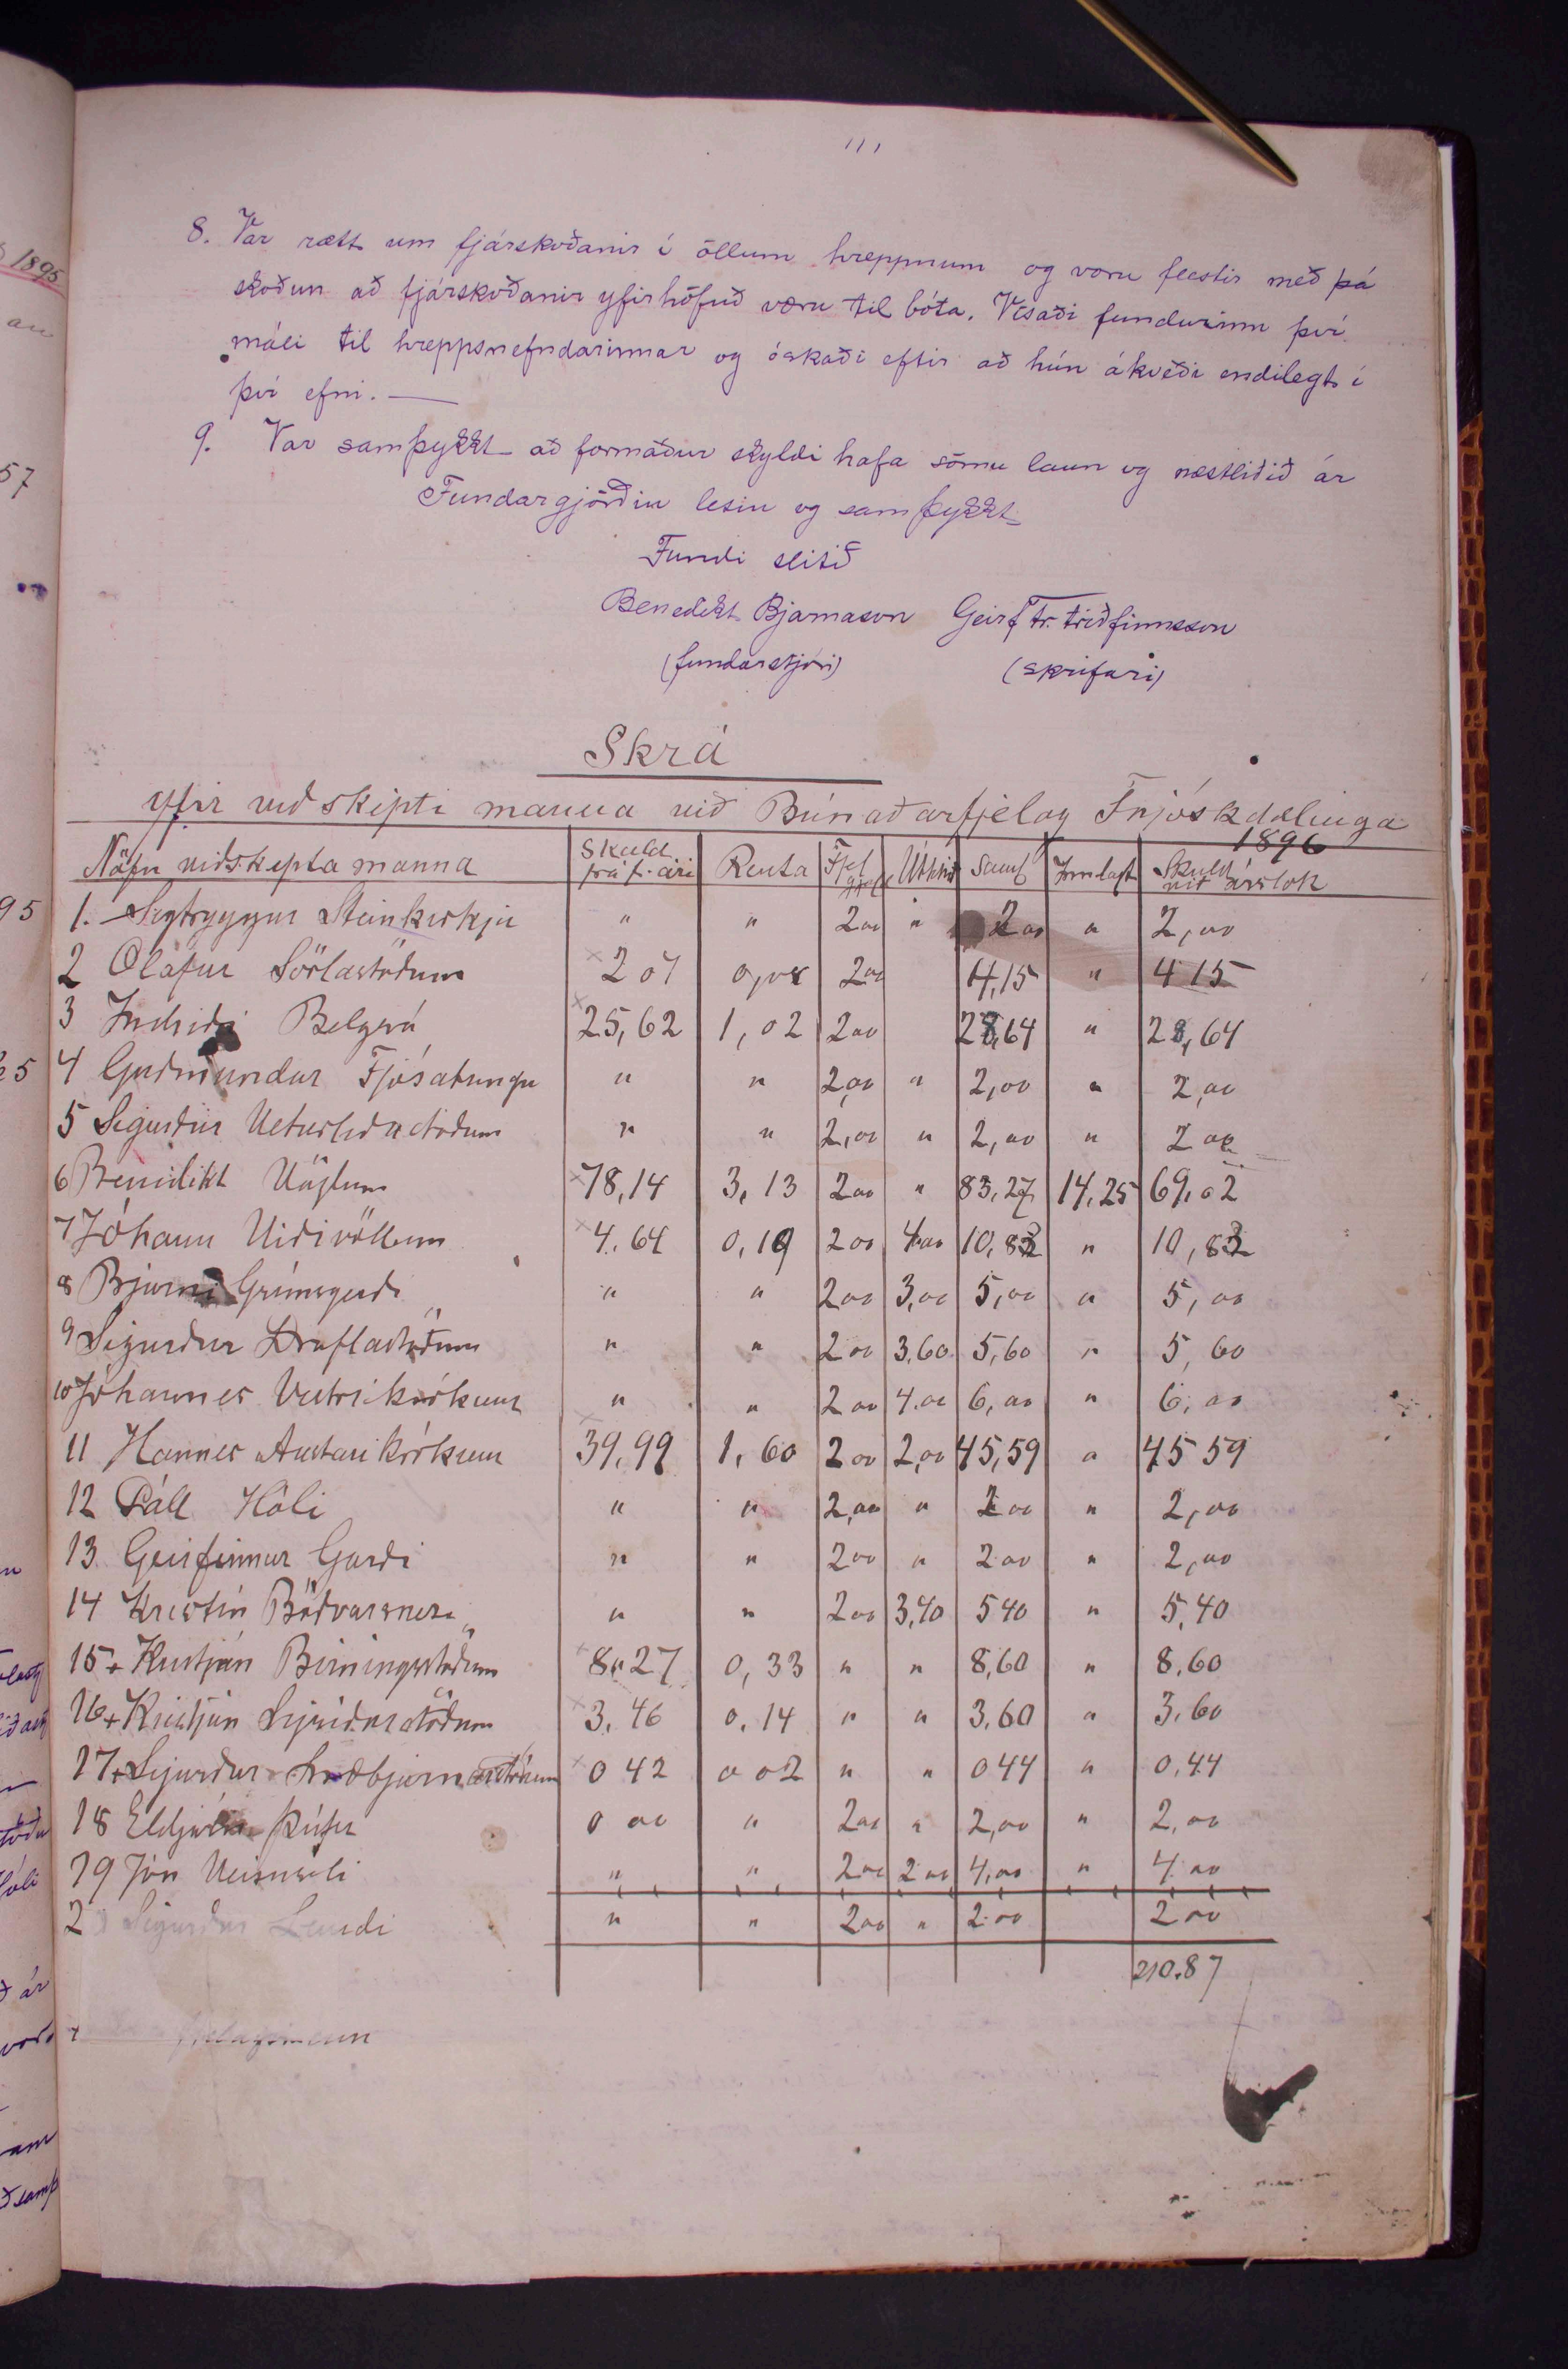 111
8. Var rætt um fjárskoðanir í öllum hreppnum og voru flestir með þá
skoðun að fjárskoðanir yfirhöfuð væru til bóta. Vísaði fundurinn því
máli til hreppsnefndarinnar og óskaði eftir að hún ákveði endilegt í
því efni. —
9. Var samþykkt að formaður skyldi hafa sömu laun og næstliðið ár
Fundargjörðin lesin og samþykkt
Fundi slitið
Benedikt Bjarnason Geirf Tr. Friðfinnsson
(fundarstjóri) (skrifari)
Skrá
yfir viðskipti manna við Búnaðarfjelag Fnjóskdælinga
1896
Nöfn viðskiptamanna | Skuld frá f. ári | Renta | Fjel gjald | Úttekt | Samt | Innlagt | Skuld við árslok
1. Sigtryggur Steinkirkju " " 2 00 " 2 00 " 2,00
2 Ólafur Sörlastöðum × 2 07 0,08 2 00 4,15 " 4 15
3 Indriði Belgsá × 25,62 1,02 2 00 28,64 " 28,64
4 Guðmundur Fjósatungu " " 2,00 " 2,00 " 2,00
5 Sigurður Veturliðastöðum " " 2,00 " 2,00 " 2 00
6 Benidikt Vöglum × 78,14 3,13 2 00 " 83,27 14,25 69,02
7 Jóhann Viðivöllum × 4.64 0,19 2 00 4 00 10,83 " 10,83
8 Bjarni Grímsgerði " " 2 00 3,00 5,00 " 5,00
9 Sigurður Draflastöðum " " 2 00 3,60 5,60 " 5,60
10 Jóhannes Vestrikrókum " " 2 00 4.00 6,00 " 6,00
11 Hannes Austarikrókum × 39,99 1,60 2 00 2,00 45,59 " 45 59
12 Páll Hóli " " 2,00 " 2 00 " 2,00
13 Geirfinnur Garði " " 2 00 " 2 00 " 2,00
14 Kristín Böðvarsnesi " " 2 00 3,40 5 40 " 5,40
15 + Kristján Birningsstöðum × 8"27 0,33 " " 8,60 " 8.60
16 + Kristján Sigríðarstöðum × 3.46 0.14 " " 3.60 " 3.60
17 + Sigurður Snæbjarnarstöðum × 0 42 0 02 " " 0 44 " 0,44
18 Eldjárn Þúfu 0 00 " 2 00 " 2,00 " 2,00
19 Jón Veisuseli " " 2 00 2 00 4,00 " 4 00
2 Sigurður Lundi " " 2 00 " 2 00 2 00
210.87
+ fjelagsmenn